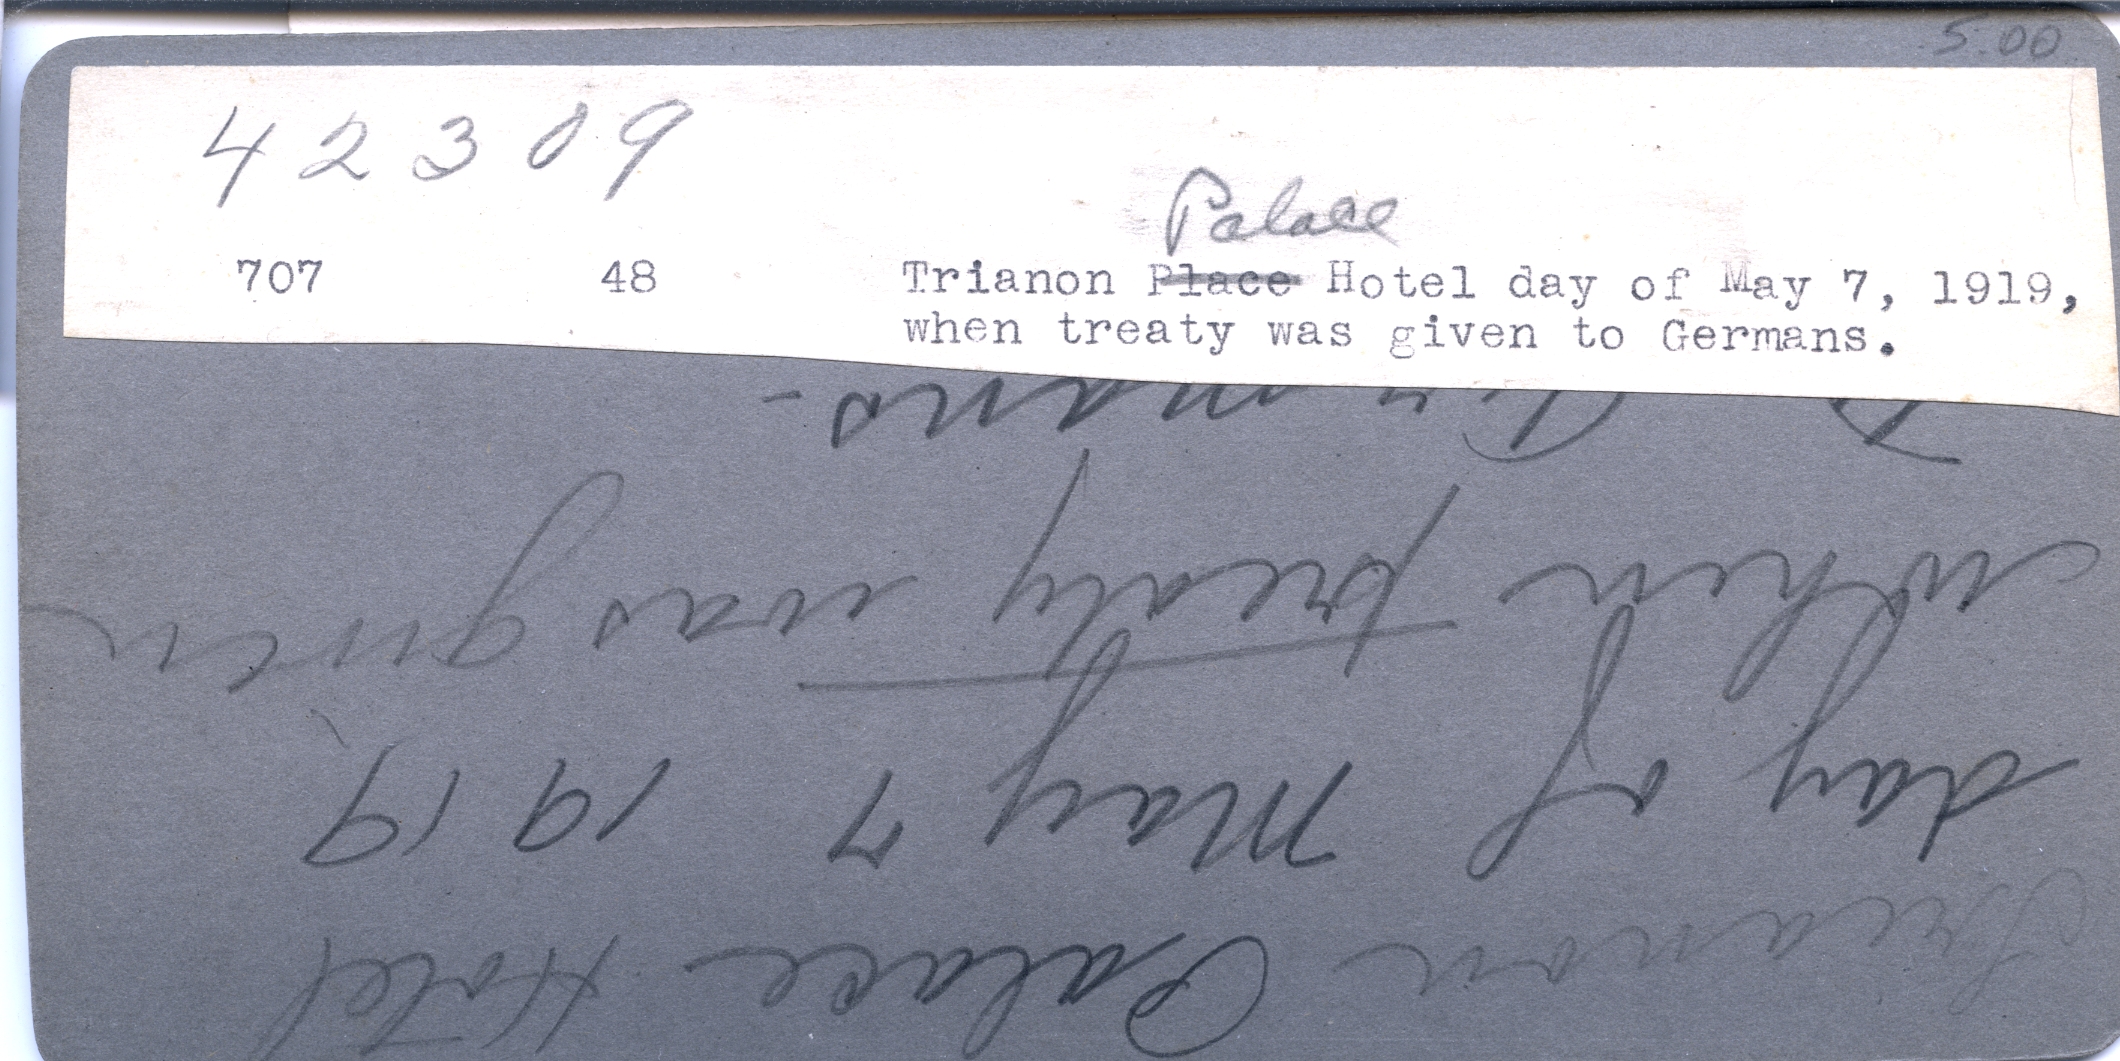 5.00
42309
Palace
707 48 Trianon Place Hotel day of May 7, 1919,
when treaty was given to Germans.
Trianon Palace Hotel
day of May 7 1919
when treaty was given
to Germans-